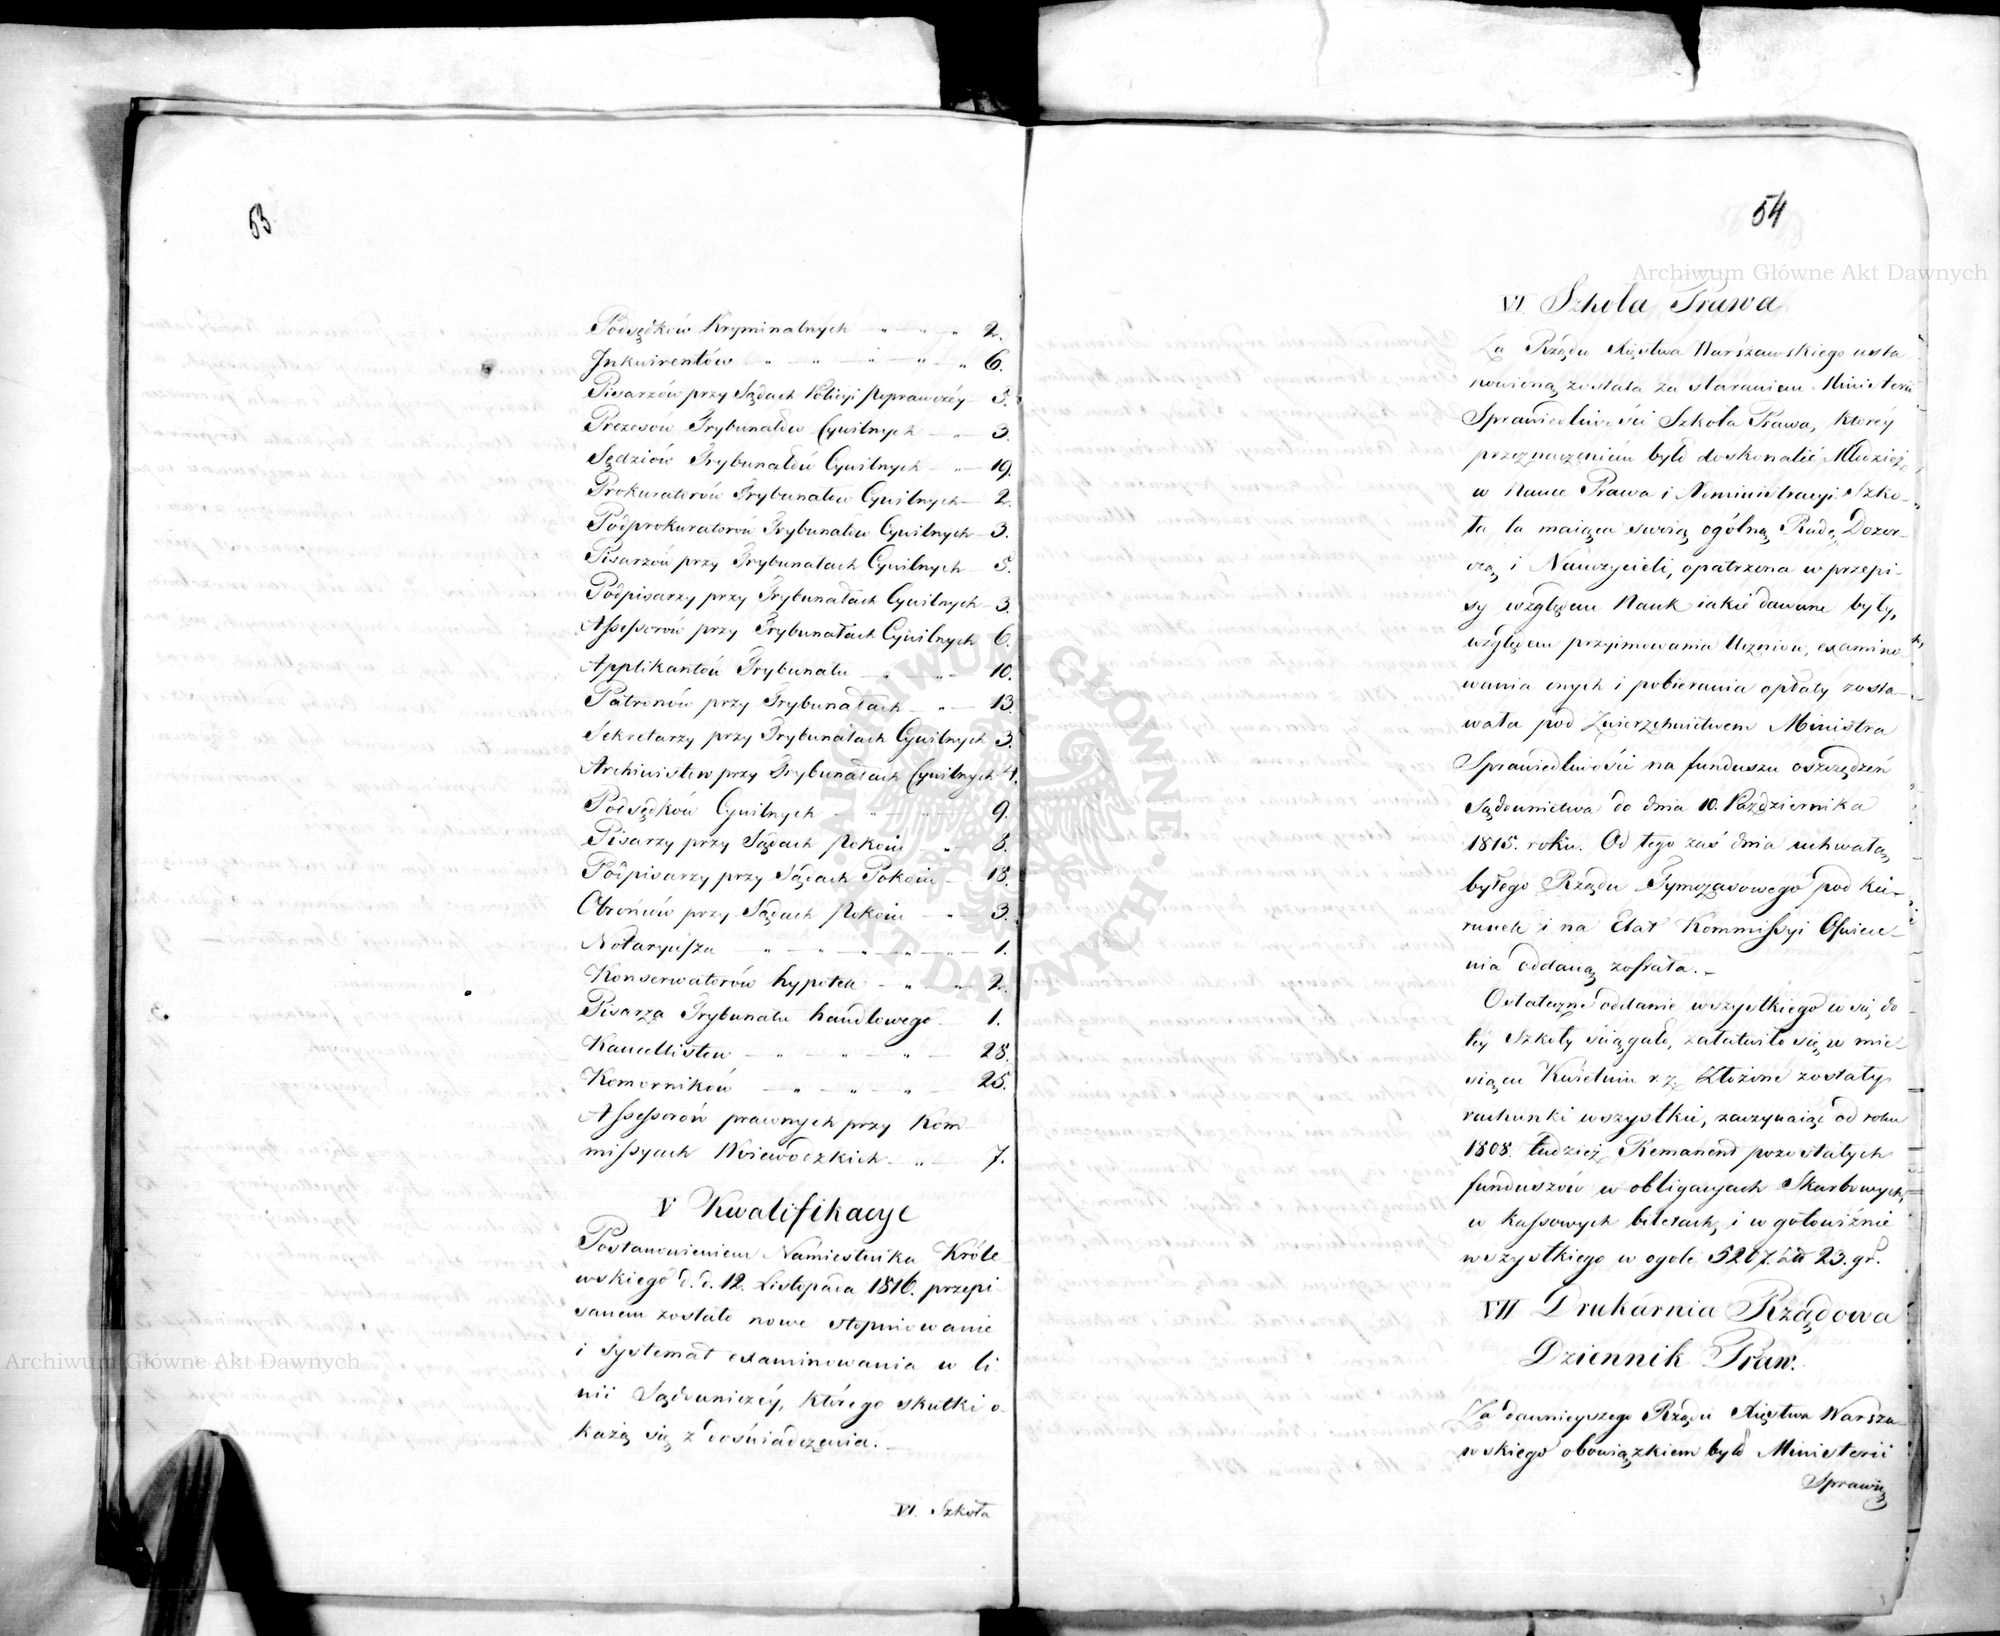 53
Podsędków Kryminalnych - „ - „ - „ 2.
Inkwirentów - „ - „ - „ - „ - „ 6.
Pisarzów przy Sądach Policyi Poprawczéy - 5.
Prezesów Trybunałów Cywilnych - „ - 3.
Sędziów Trybunałów Cywilnych - „ - 19.
Prokuratorów Trybunałów Cywilnych - 2.
Podprokuratorów Trybunałów Cywilnych - 3.
Pisarzów przy Trybunałach Cywilnych - 5.
Podpisarzy przy Trybunałach Cywilnych - 3.
Assessorów przy Trybunałach Cywilnych 6.
Applikantów Trybunału - „ - „ - 10.
Patronów przy Trybunałach - „ - 13.
Sekretarzy przy Trybunałach Cywilnych 3.
Archiwistów przy Trybunałach Cywilnych 4.
Podsędków Cywilnych - „ - „ - 9.
Pisarzy przy Sądach Pokoiu - „ - 8.
Podpisarzy przy Sądach Pokoiu - 18.
Obrońców przy Sądach Pokoiu - „ - 3.
Notaryusza - „ - „ - „ - „ - 1.
Konserwatorów hypotek - „ - „ 2.
Pisarza Trybunału handlowego - 1.
Kancellistów - „ - „ - „ - 28.
Komorników - „ - „ - „ - 25.
Assessorów prawnych przy Kom
missyach Woiewódzkich - „ - 7.
V Kwalifikacye
Postanowieniem Namiestnika Króle
wskiego d. d. 12. Listopada 1816. przepi
sanem zostało nowe stopniowanie
i systemat examinowania w li
nii Sądowniczéy, którego skutki o-
każą się z doświadczenia. -
VI. Szkoła
54
VI Szkoła Prawa
Za Rządu Xięstwa Warszawskiego usta
nowioną została za staraniem Ministerii
Sprawiedliwości Szkoła Prawa, któréy
przeznaczeniem było doskonalić Młodzież
w Nauce Prawa i Administracyi. Szko-
ła ta maiąca swoią ogólną Radę Dozor-
czą i Nauczycieli, opatrzona w przepi-
sy względem Nauk iakie dawane były,
względem przyimowania Uczniów, examino-
wania onych i pobierania opłaty zosta-
wała pod Zwierzchnictwem Ministra
Sprawiedliwości na funduszu oszczędzeń
Sądownictwa do dnia 10. Października
1815. roku. Od tego zaś dnia uchwałą
byłego Rządu Tymczasowego pod kie-
runek i na Etat Kommissyi Oświece-
nia oddaną została. -
Ostateczne oddanie wszystkiego co się do
téy Szkoły ściągało, załatwiło się w mie-
siącu Kwietniu r. z. Złożone zostały
rachunki wszystkie, zaczynaiąc od roku
1808. tudzież Remanent pozostałych
funduszów w obligacyach Skarbowych,
w kassowych biletach, i w gotowiźnie
wszystkiego w ogóle 5267. Złł 23. gr.
VII Drukarnia Rządowa
Dziennik Praw.
Za dawnieyszego Rządu Xięstwa Warsza-
wskiego obowiązkiem było Ministerii
Sprawie
Archiwum Główne Akt Dawnych
Archiwum Główne Akt Dawnych
ARCHIWUM GŁÓWNE
AKT DAWNYCH